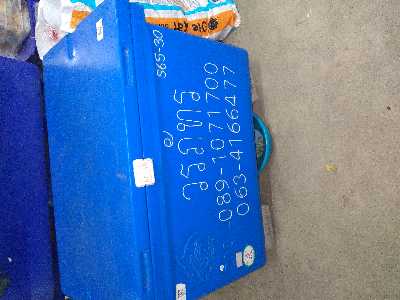 S6S-30
วรภัทร
089-1071700
063-4166477